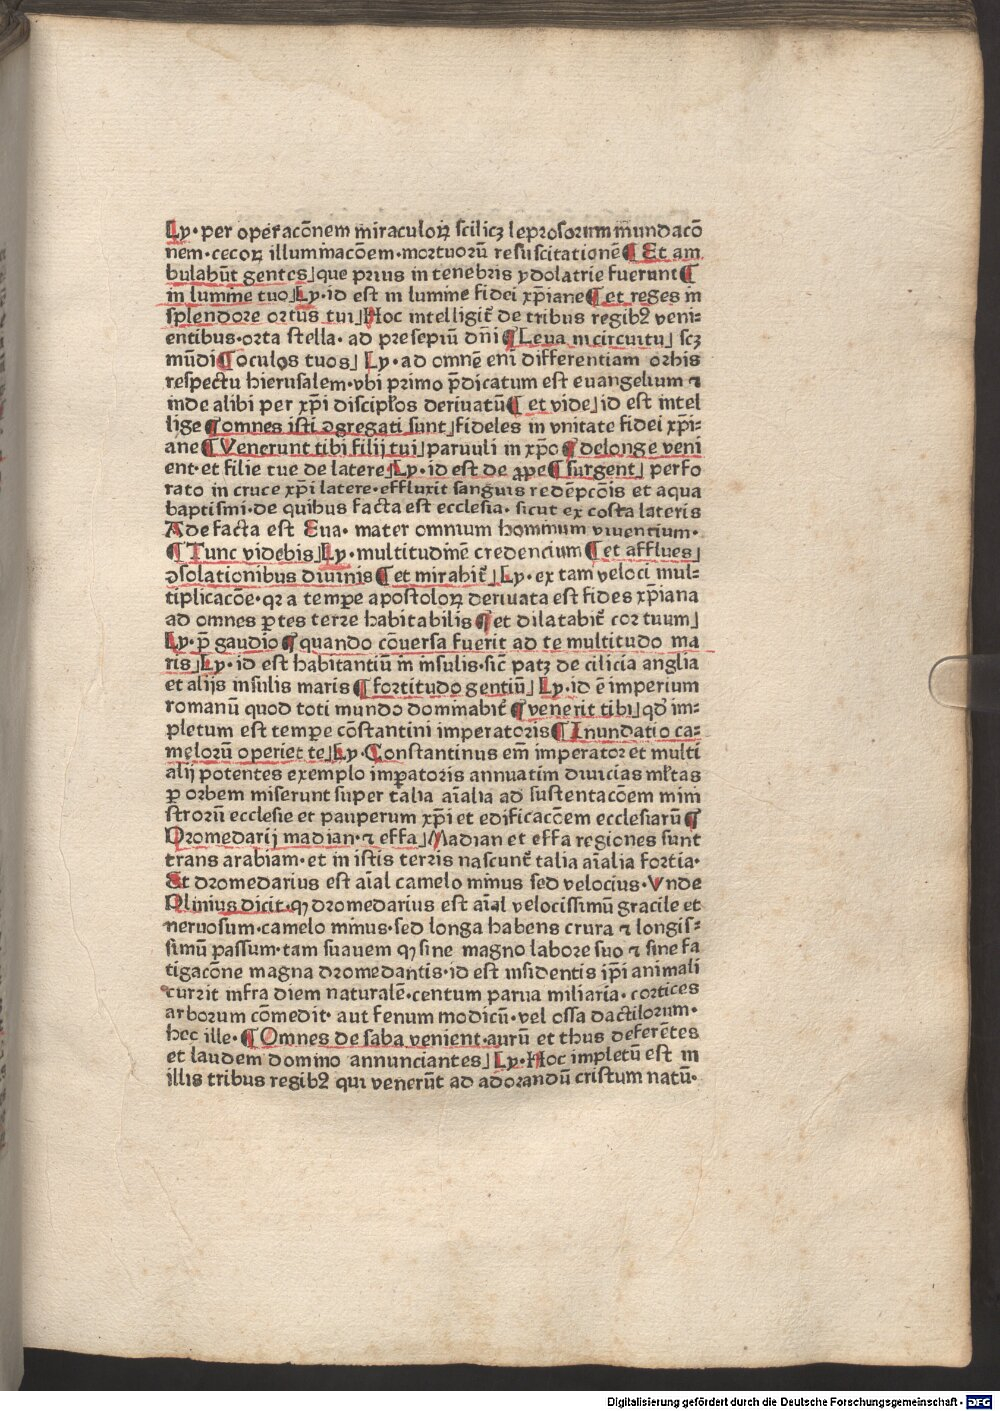 Ly·per operacōnem miraculoꝝ scilicꝫ leprosorum mūndacō
nem·cecoꝝ illuminacōem·mortuorū resuscitationē ¶ Et am
bulabūt gentes⌋ que prius in tenebris ydolatrie fuerunt ¶
in lumine tuo⌋ Ly·id est in lumine fidei xp̄iane ¶ et reges in
splendore ortus tui⌋ Hoc intelligit̄ de tribus regibꝫ veni⸗
entibus·orta stella·ad presepiū dn̄i ¶ Leua in circuitu⌋ scꝫ
mūdi ¶ oculos tuos⌋ Ly·ad omnē eni differentiam orbis
respectu hierusalem·vbi primo p̄dicatum est euangelium ⁊
inde alibi per xp̄i discipl̄os deriuatū ¶ et vide⌋ id est intel
lige ¶ omnes isti ꝯgregati sunt⌋ fideles in vnitate fidei xp̄i⸗
ane ¶ Venerunt tibi filij tui⌋ paruuli in xp̄o ¶ de longe veni
ent·et filie tue de latere⌋ Ly·id est de ꝓpe ¶ surgent⌋ perfo
rato in cruce xp̄i latere·effluxit sanguis redēpcōis et aqua
baptismi·de quibus facta est ecclesia·sicut ex costa lateris
Ade facta est Eua·mater omnium hominum viuencium·
¶ Tunc videbis⌋ Ly·multitudinē credencium ¶ et afflues⌋
ꝯsolationibus diuinis ¶ et mirabit̄⌋ Ly·ex tam veloci mul⸗
tiplicacōe·qꝛ a tempe apostoloꝝ deriuata est fides xp̄iana
ad omnes ꝑtes terre habitabilis ¶ et dilatabit̄ cor tuum⌋
Ly·p̄ gaudio ¶ quando cōuersa fuerit ad te multitudo ma
ris⌋ Ly·id est habitantiū in insulis·sic̄ patꝫ de cilicia anglia
et alijs insulis maris ¶ fortitudo gentiū⌋ Ly·id ē imperium
romanū quod toti mundo dominabit̄ ¶ venerit tibi⌋ qđ im⸗
pletum est tempe cōstantini imperatoris ¶ Inundatio ca⸗
melorū operiet te⌋ Ly·Constantinus em̄ imperator et multi
alij potentes exemplo imꝑatoris annuatim diuicias ml̄tas
ꝑ orbem miserunt super talia aīalia ad sustentacōem mini
strorū ecclesie et pauperum xp̄i et edificacōem ecclesiarū ¶
Dromedarij madian·⁊ effa⌋ Madian et effa regiones sunt
trans arabiam·et in istis terris nascunt̄ talia aīalia fortia·
Et dromedarius est aīal camelo minus sed velocius·Vnde
Plinius dicit·ꝙ dromedarius est aīal velocissimū gracile et
neruosum·camelo minus·sed longa habens crura ⁊ longis⸗
simū passum·tam suauem ꝙ sine magno labore suo ⁊ sine fa
tigacōne magna dromedantis·id est insidentis ip̄i animali
currit infra diem naturalē·centum parua miliaria·cortices
arborum cōmedit·aut fenum modicū·vel ossa dactilorum·
hec ille·¶ Omnes de saba venient·aurū et thus deferētes
et laudem domino annunciantes⌋ Ly·Hoc impletū est in
illis tribus regibꝫ qui venerūt ad adorandū cristum natū·
Digitalisierung gefördert durch die Deutsche Forschungsgemeinschaft - DFG